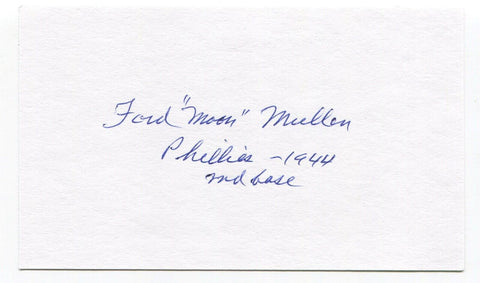 Ford "Moon" Mullen
Phillies - 1944
2nd base